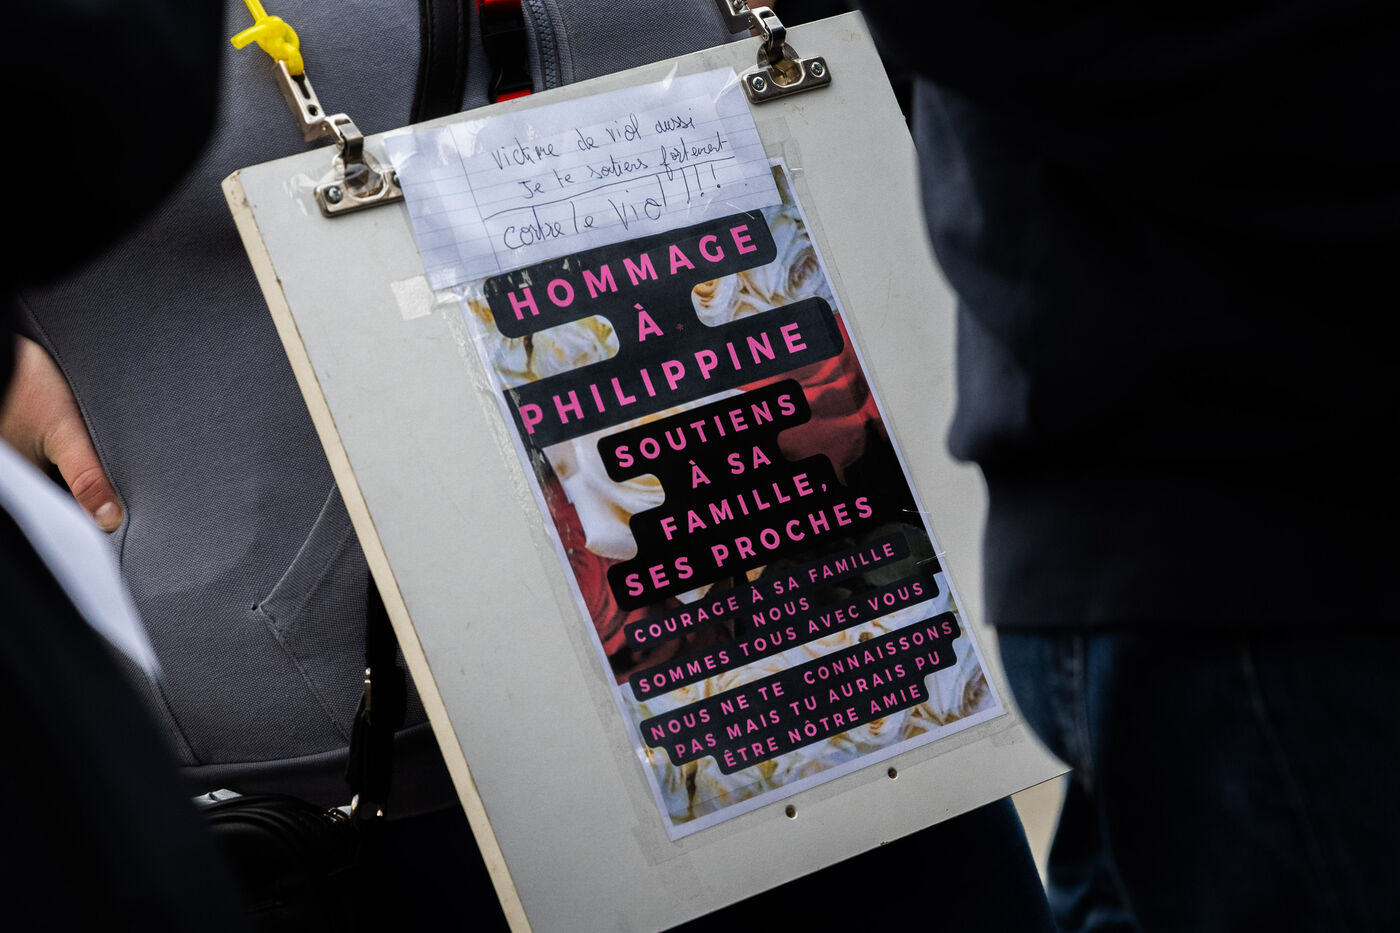 victime de viol aussi
Je te soutiens fortement
contre le viol !!!
HOMMAGE
À
PHILIPPINE
SOUTIENS
À SA
FAMILLE,
SES PROCHES
COURAGE À SA FAMILLE
NOUS
SOMMES TOUS AVEC VOUS
NOUS NE TE CONNAISSONS
PAS MAIS TU AURAIS PU
ÊTRE NÔTRE AMIE